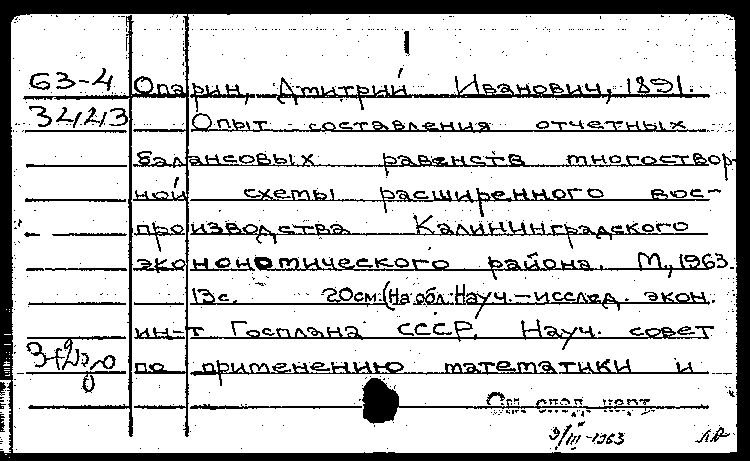 I
63-4 Опарин, Дмитрий Иванович, 1891.
32423 Опыт составления отчетных
балансовых равенств многоствор-
ной схемы расширенного вос-
производства Калининградского
экономического района. М., 1963.
13с. 20см. (На обл.: Науч.-исслед. экон.
ин-т Госплана СССР. Науч. совет
по применению математики и
См. след. карт.
9/III-1963